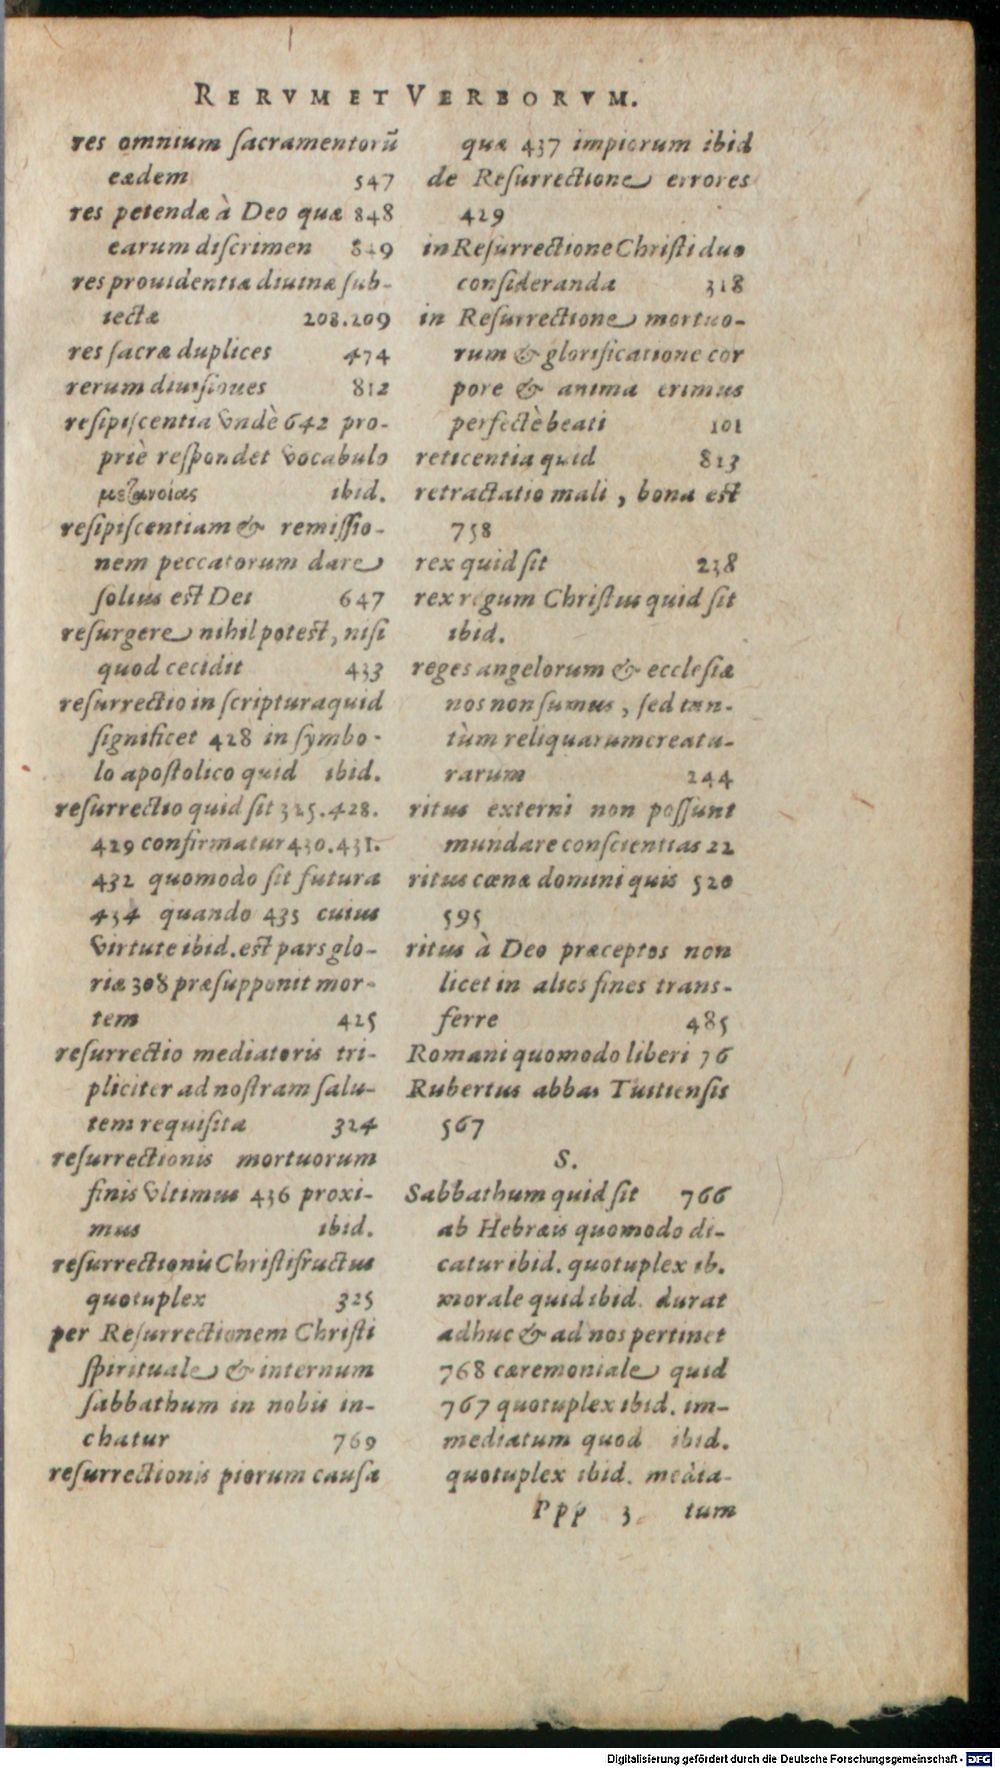 RERVM ET VERBORVM.
res omnium sacramentorũ
eædem 547
res petendæ à Deo quæ 848
earum discrimen 849
res prouidentiæ diuinæ sub-
iectæ 208.209
res sacræ duplices 474
rerum diuisiones 812
resipiscentia vndè 642 pro-
priè respondet vocabulo
μετανοίας ibid.
resipiscentiam & remissio-
nem peccatorum dare
solius est Dei 647
resurgere nihil potest, nisi
quod cecidit 433
resurrectio in scriptura quid
significet 428 in symbo-
lo apostolico quid ibid.
resurrectio quid sit 325.428.
429 confirmatur 430.431.
432 quomodo sit futura
434 quando 435 cuius
virtute ibid. est pars glo-
riæ 308 præsupponit mor-
tem 425
resurrectio mediatoris tri-
pliciter ad nostram salu-
tem requisita 324
resurrectionis mortuorum
finis vltimus 436 proxi-
mus ibid.
resurrectionis Christi fructus
quotuplex 325
per Resurrectionem Christi
spirituale & internum
sabbathum in nobis in-
choatur 769
resurrectionis piorum causa
quæ 437 impiorum ibid
de Resurrectione errores
429
in Resurrectione Christi duo
consideranda 318
in Resurrectione mortuo-
rum & glorificatione cor
pore & anima erimus
perfectè beati 101
reticentia quid 813
retractatio mali, bona est
758
rex quid sit 238
rex regum Christus quid sit
ibid.
reges angelorum & ecclesiæ
nos non sumus, sed tan-
tùm reliquarum creatu-
rarum 244
ritus externi non possunt
mundare conscientias 22
ritus cœnæ domini quis 520
595
ritus à Deo præceptos non
licet in alios fines trans-
ferre 485
Romani quomodo liberi 76
Rubertus abbas Tuitiensis
567
S.
Sabbathum quid sit 766
ab Hebræis quomodo di-
catur ibid. quotuplex ib.
morale quid ibid. durat
adhuc & ad nos pertinet
768 cæremoniale quid
767 quotuplex ibid. im-
mediatum quod ibid.
quotuplex ibid. media-
Ppp 3 tum
Digitalisierung gefördert durch die Deutsche Forschungsgemeinschaft - DFG